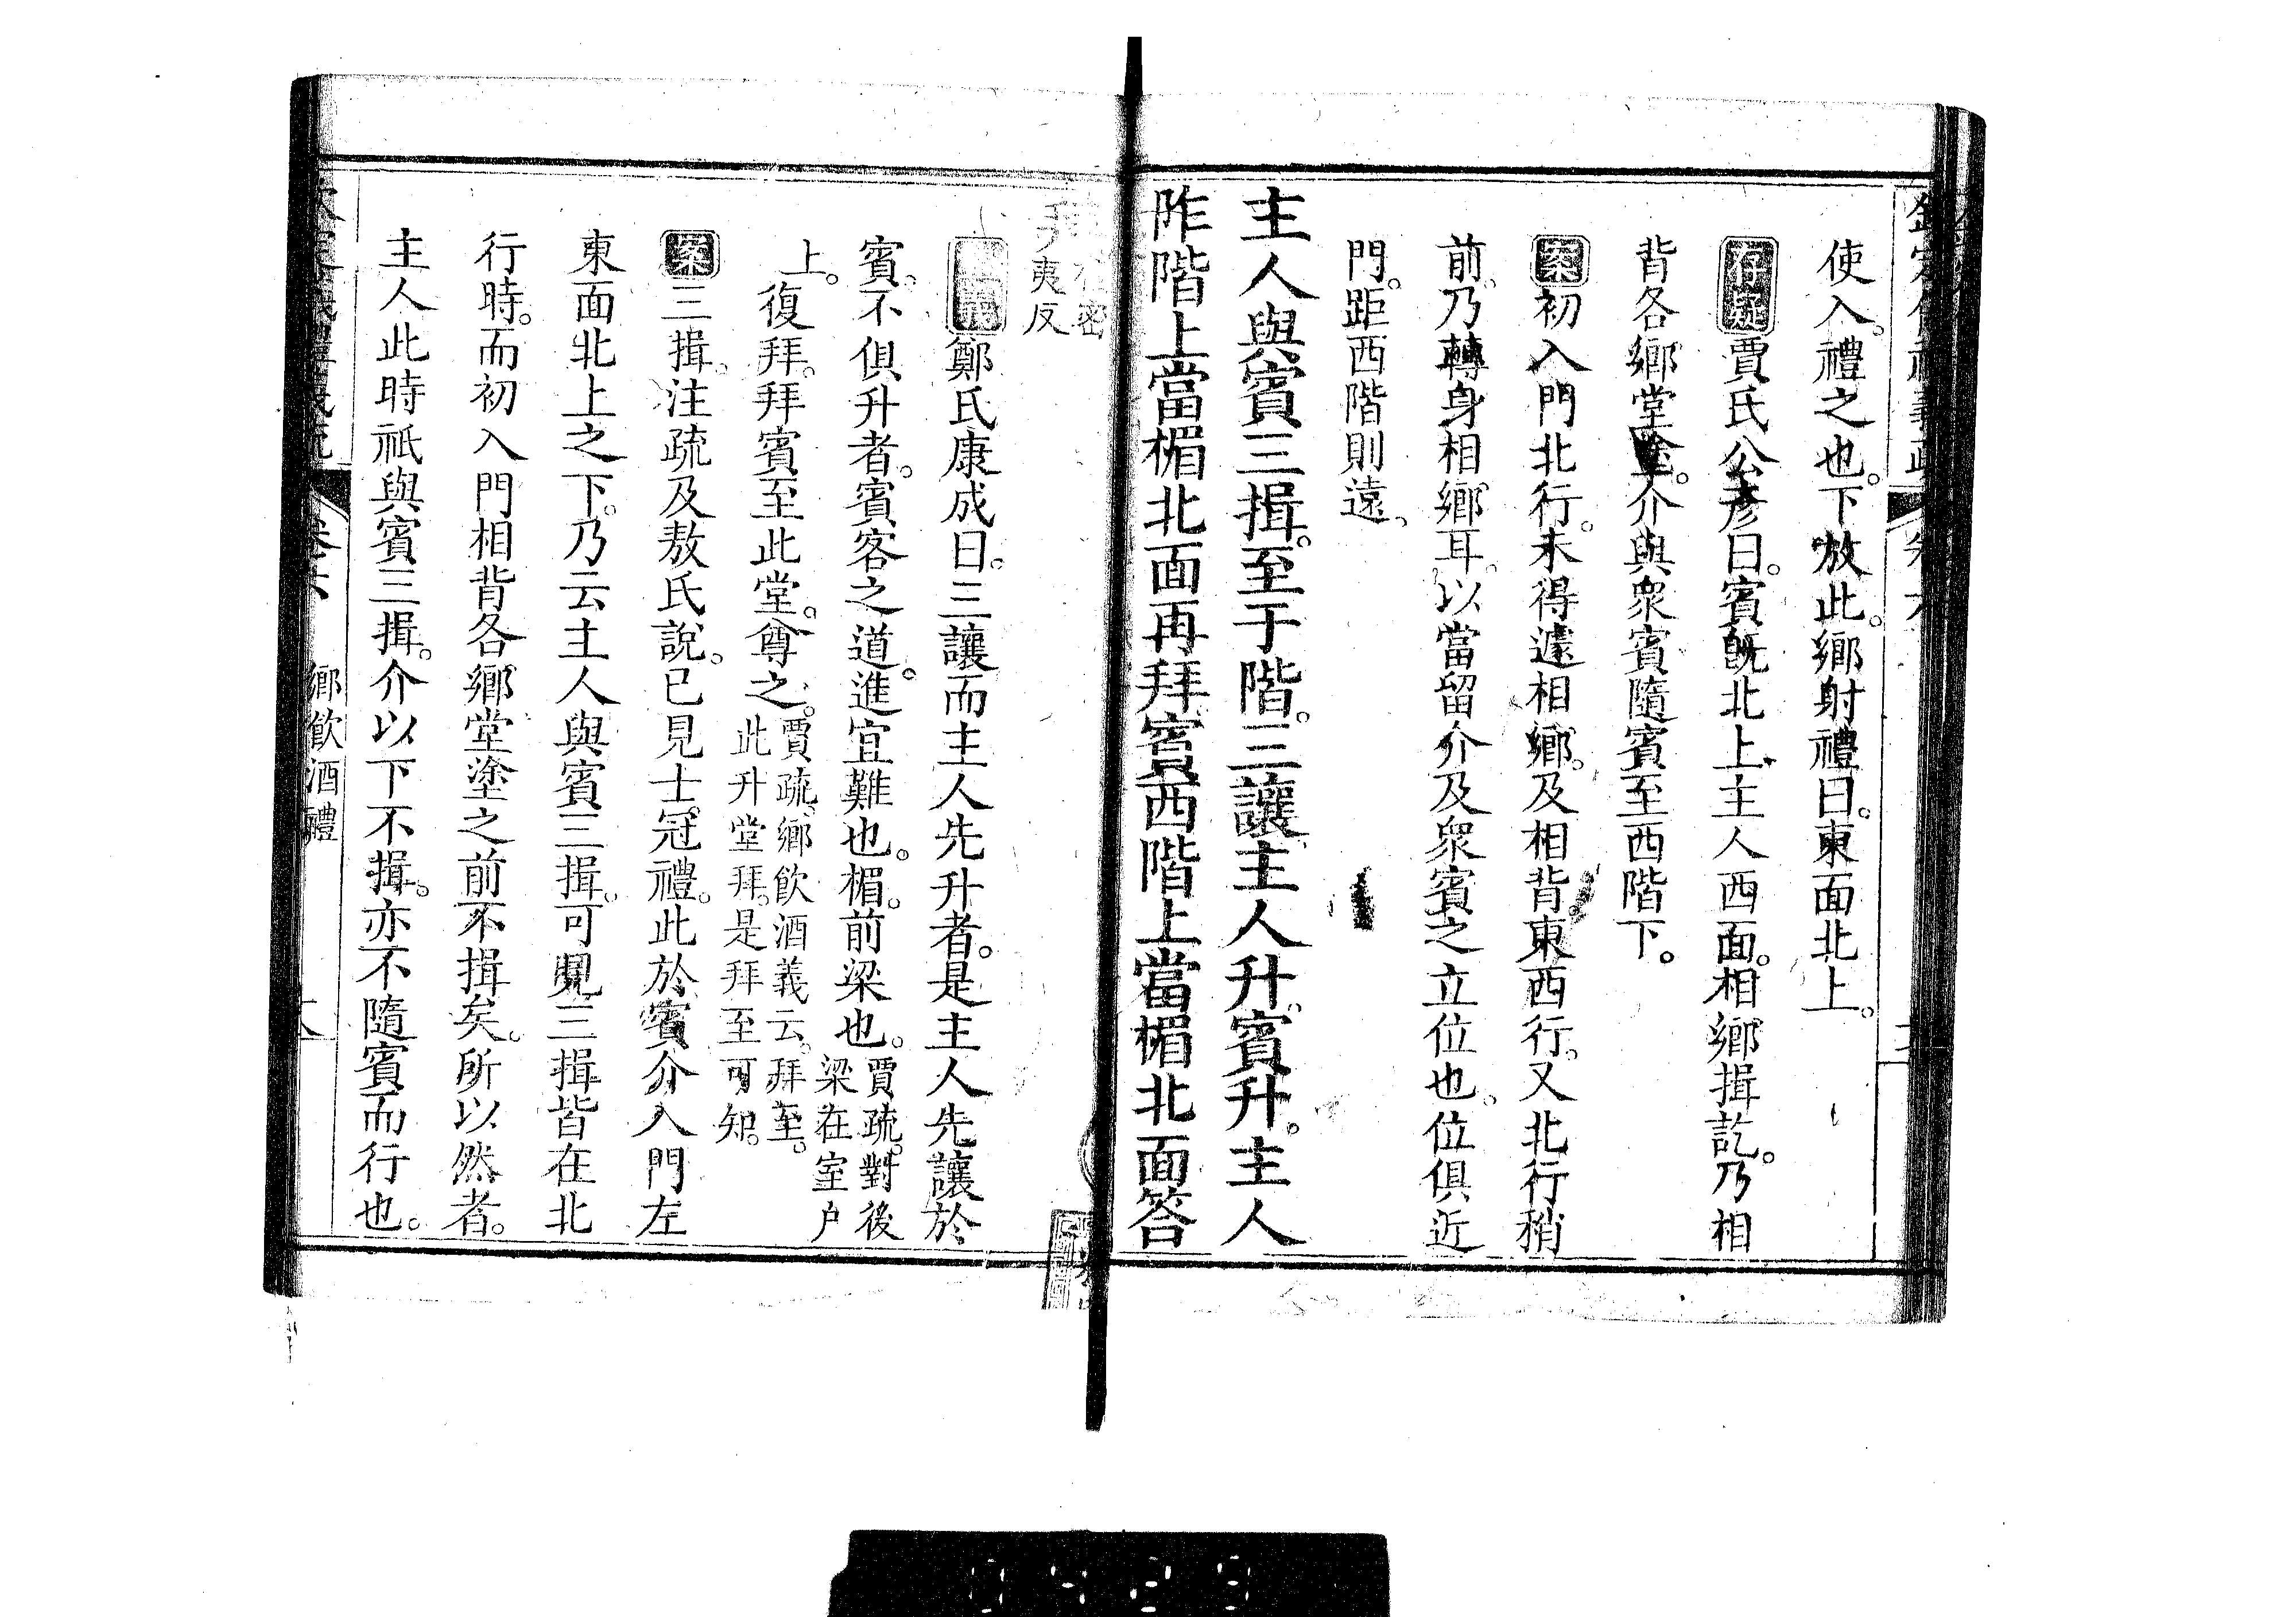 使入。禮之也。下放此。鄉射禮曰。東面北上。
存疑賈氏公彥曰。賓旣北上主人西面。相鄉揖訖。乃相
背各鄉堂塗。介與衆賓隨賓至西階下。
案初入門北行。未得遽相鄉。及相背東西行。又北行稍
前。乃轉身相鄉耳。以當留介及衆賓之立位也。位俱近
門。距西階則遠。
主人與賓三揖。至于階。三讓。主人升。賓升。主人
阼階上當楣北面再拜。賓西階上當楣北面答
密
夷反
鄭氏康成曰。三讓而主人先升者。是主人先讓於
賓。不俱升者。賓客之道。進宜難也。楣。前梁也。賈疏。對後梁在室戶
上。復拜。拜賓至此堂。尊之。賈疏。鄉飲酒義云。拜至。此升堂拜。是拜至可知。
案三揖。注疏及敖氏說。已見士冠禮。此於賓介入門左
東面北上之下。乃云主人與賓三揖。可見三揖皆在北
行時。而初入門相背各鄉堂塗之前不揖矣。所以然者。
主人此時祇與賓三揖。介以下不揖。亦不隨賓而行也。
卷六 鄉飲酒禮